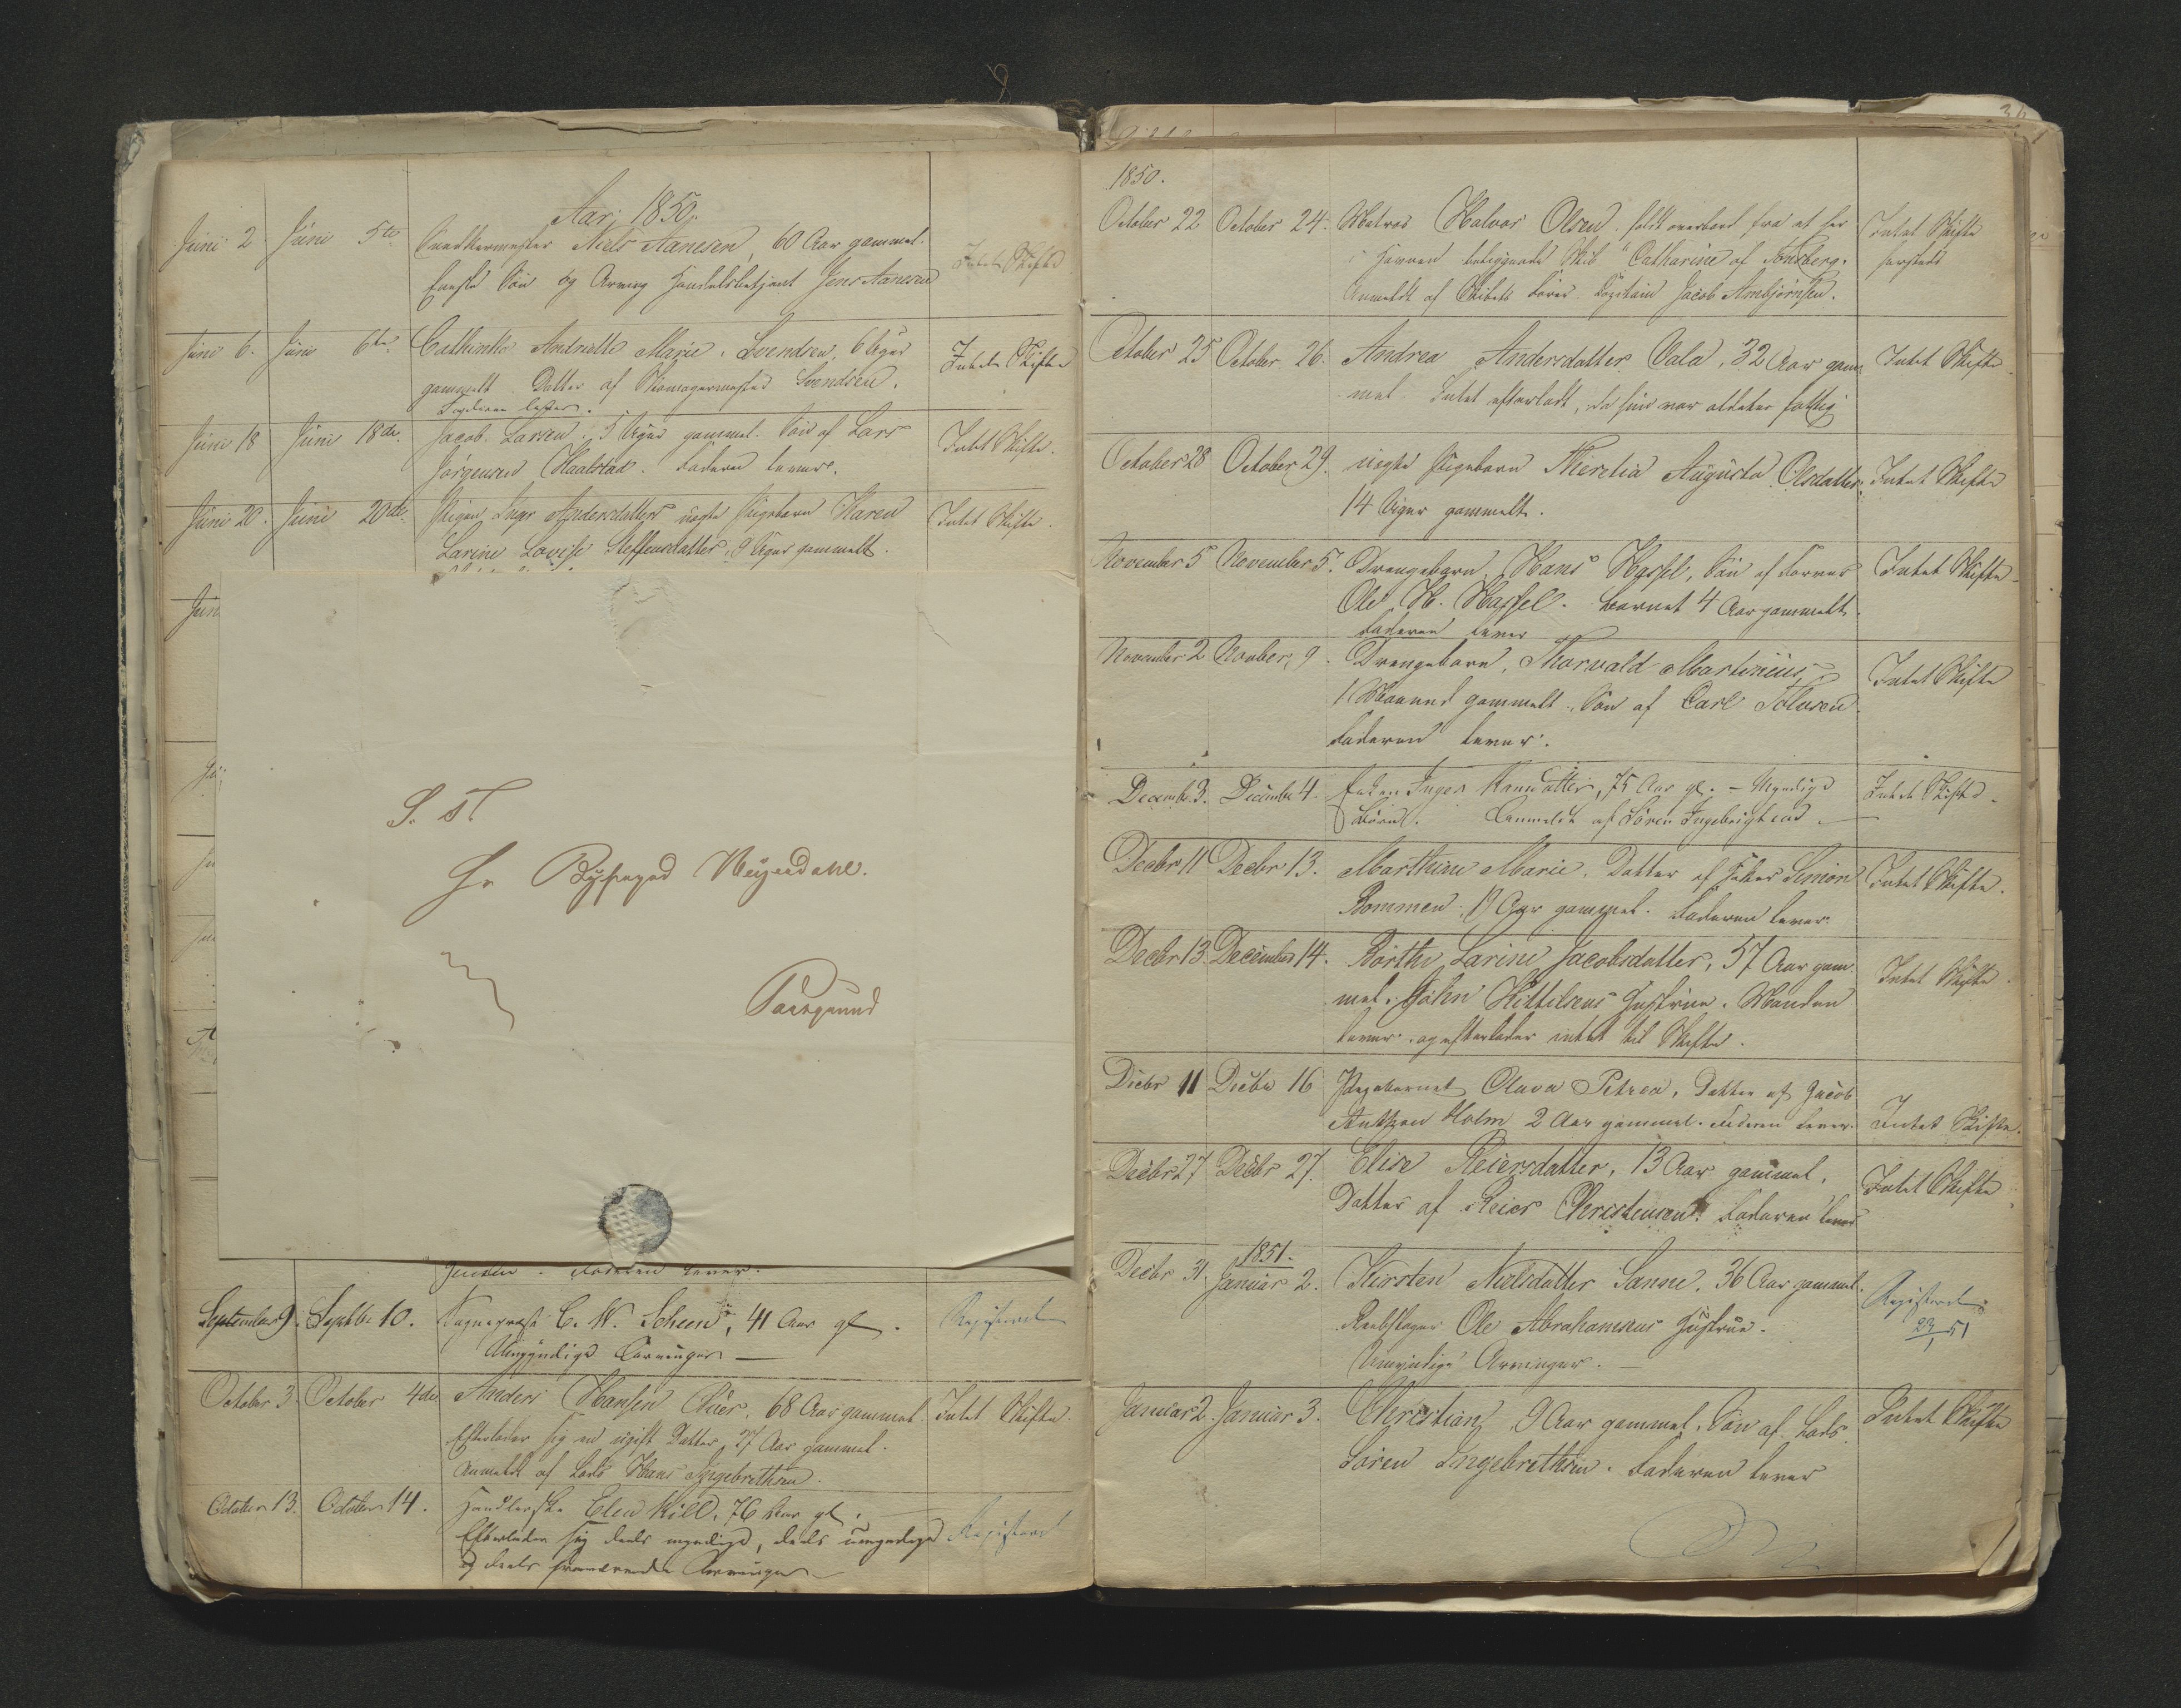 Aar 1850.
Juni 2 Juni 5te Snedkermester Niels Aanesen, 60 Aar gammel. Intet Skifte
Eneste Søn og Arving Handelsbetjent Jens Aanesen
Juni 6. Juni 6te Cathinka Andrielle Marie Svendsen, 6 Uger Intet Skifte
gammelt Datter af Skomagermester Svendsen.
Faderen lever.
Juni 18 Juni 18de. Jacob Larsen, 5 Uger gammel. Søn af Lars Intet Skifte.
Jørgensen Haalstad. Faderen lever.
Juni 20. Juni 20de. Pigen Inger Andersdatters uægte Pigebarn Karen Intet Skifte.
Larine Lovise Steffensdatter, 9 Uger gammelt.
Juni
S. T.
Hr Byfoged Weyerdahl.
Porsgrund
Jensen. Faderen lever.
September 9. Septbr 10. Sogneprest C. W. Scheen, 41 Aar gl. Registreret
Umyndige Arvinger
October 3. October 4de Anders Hansen, 68 Aar gammel. Intet Skifte.
Efterlader sig en ugift Datter, 27 Aar gammel.
Anmeldt af Lods Hans Ingebrethsen.
October 13. October 14. Handlerske Elen Kiil, 76 Aar gl.
Efterlader sig deels myndige, deels umyndige Registreret
og deels fraværende Arvinger
1850.
October 22 October 24. Matros Halvor Olsen faldt overbord fra et her Intet Skifte
i Havnen beliggende Skib "Catharine af Tønsberg.
Anmeldt af Skibets Fører Capitain Jacob Ambjørnsen.
October 25 October 26. Andrea Andersdatter Vala, 32 Aar gam- Intet Skifte
mel Intet efterladt, da hun var aldeles fattig
October 28 October 29. uægte Pigebarn Augusta Olsdatter Intet Skifte
14 Uger gammelt.
November 5 November 5. Drengebarn Hans Hassel, Søn af Farver Intet Skifte
Ole H. Hassel. Barnet 4 Aar gammelt.
Faderen lever
November 2 Novber 9. Drengebarn, Thorvald Martinius, Intet Skifte
1 Maaned gammelt, Søn af Carl Tolvsen
Faderen lever.
Decemb. 3. Decembr 4. Enken Inger Hansdatter, 75 Aar gl. – Myndige Intet Skifte.
Børn. Anmeldt af Søren Ingebrigtsen
Decbr 11 Decbr 13. Marthine Marie. Datter af Simon Intet Skifte.
Bommen. Aar gammel. Faderen lever.
Decbr 13. December 14. Børthe Larine Jacobsdatter, 57 Aar gam- Intet Skifte.
mel, John Kittelsens Hustrue. Manden
lever og efterlader intet til Skifte.
Decbr 11 Decbr 16 Pigebarnet Olava Petrea, Datter af Jacob
Anthon Holm 2 Aar gammel. Faderen lever. Intet Skifte.
Decbr 27 Decbr 27. Elise Reiersdatter, 13 Aar gammel, Intet Skifte
Datter af Reier Christensen. Faderen lever
1851.
Decbr 31. Januar 2. Kirsten Nielsdatter Sanne, 36 Aar gammel. Registreret
Rebslager Ole Abrahamsens Hustrue. 23/1 51
Umyndige Arvinger.
Januar 2. Januar 3. Christian, 9 Aar gammel, Søn af Lods Intet Skifte
Søren Ingebrethsen. Faderen lever